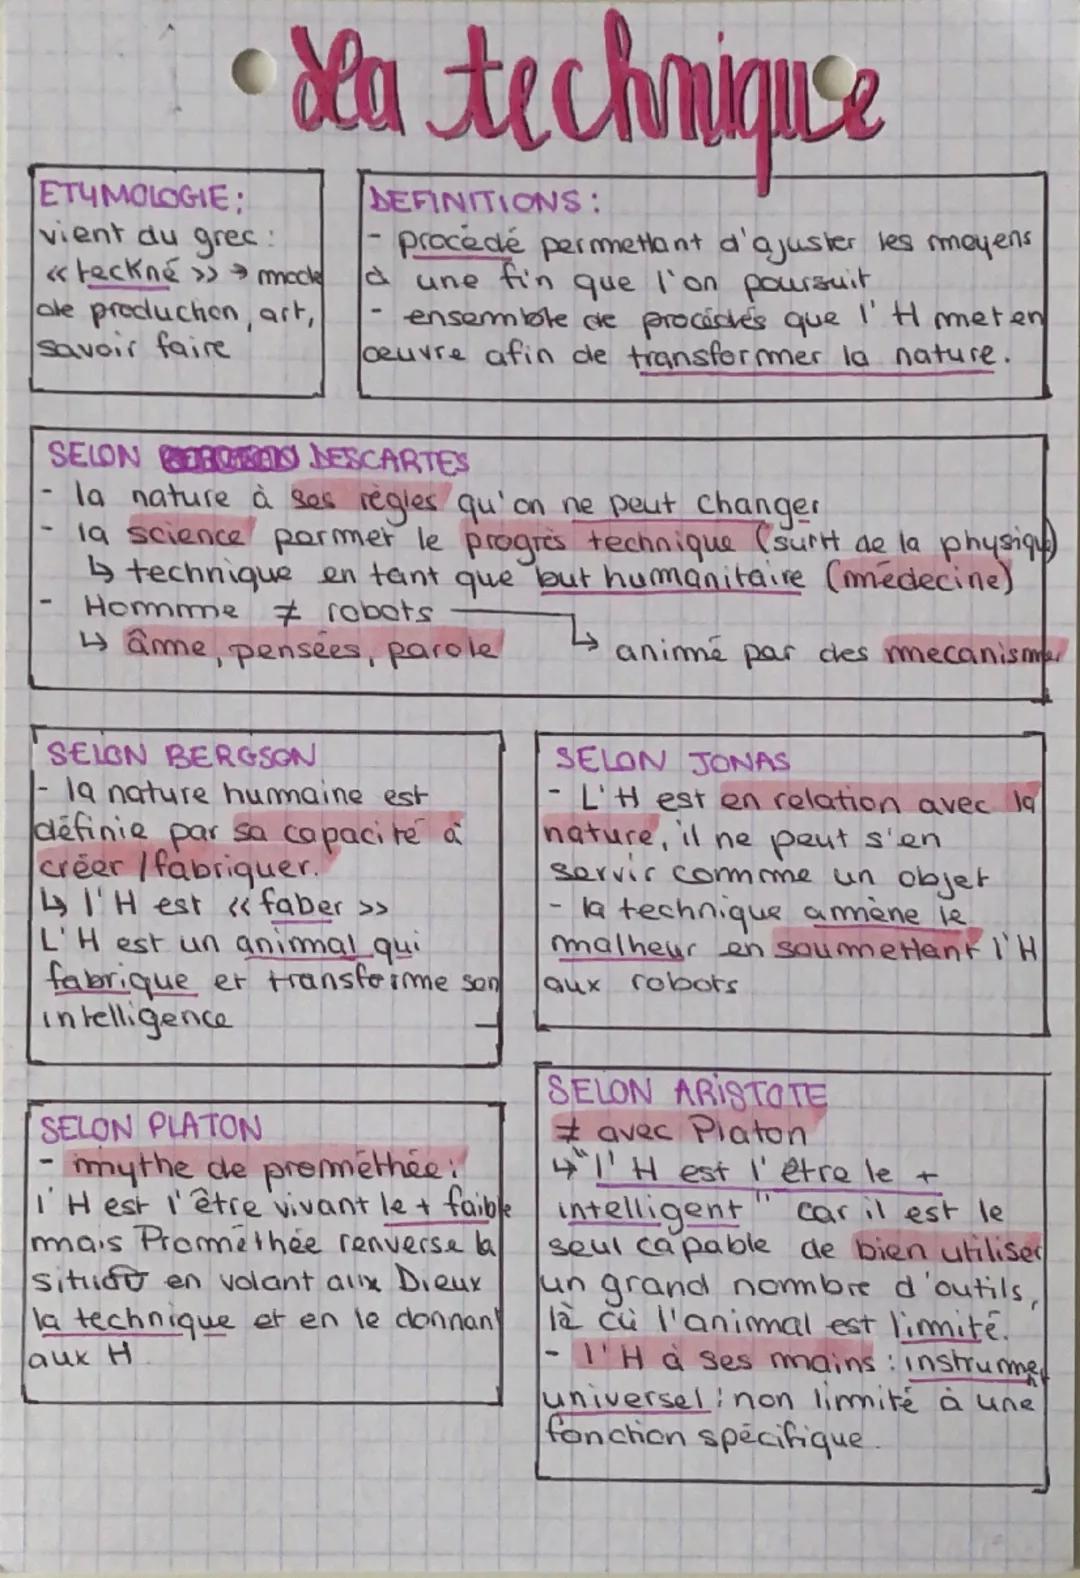 La technique
ETYMOLOGIE :
vient du grec :
« teckné » → mode
de production, art,
savoir faire
DEFINITIONS :
- procédé permettant d'ajuster les moyens
à une fin que l'on poursuit
- ensemble de procédés que l'H met en
œuvre afin de transformer la nature.
SELON DESCARTES
- la nature à ses règles qu'on ne peut changer
- la science permet le progrès technique (surtt de la physique)
↳ technique en tant que but humanitaire (médecine)
- Homme ≠ robots
↳ âme, pensées, parole
↳ animé par des mecanismes
SELON BERGSON
- la nature humaine est
définie par sa capacité à
créer / fabriquer.
↳ l'H est « faber »
L'H est un animal qui
fabrique et transforme son
intelligence
SELON JONAS
- L'H est en relation avec la
nature, il ne peut s'en
servir comme un objet
- la technique amène le
malheur en soumettant l'H
aux robots
SELON PLATON
- mythe de prométhée :
l'H est l'être vivant le + faible
mais Prométhée renverse la
en volant aux Dieux
la technique et en le donnant
aux H
SELON ARISTOTE
≠ avec Platon
↳ "l'H est l'être le +
intelligent" car il est le
seul capable de bien utiliser
un grand nombre d'outils,
là où l'animal est limité.
- l'H à ses mains : instrument
universel : non limité à une
fonction spécifique.